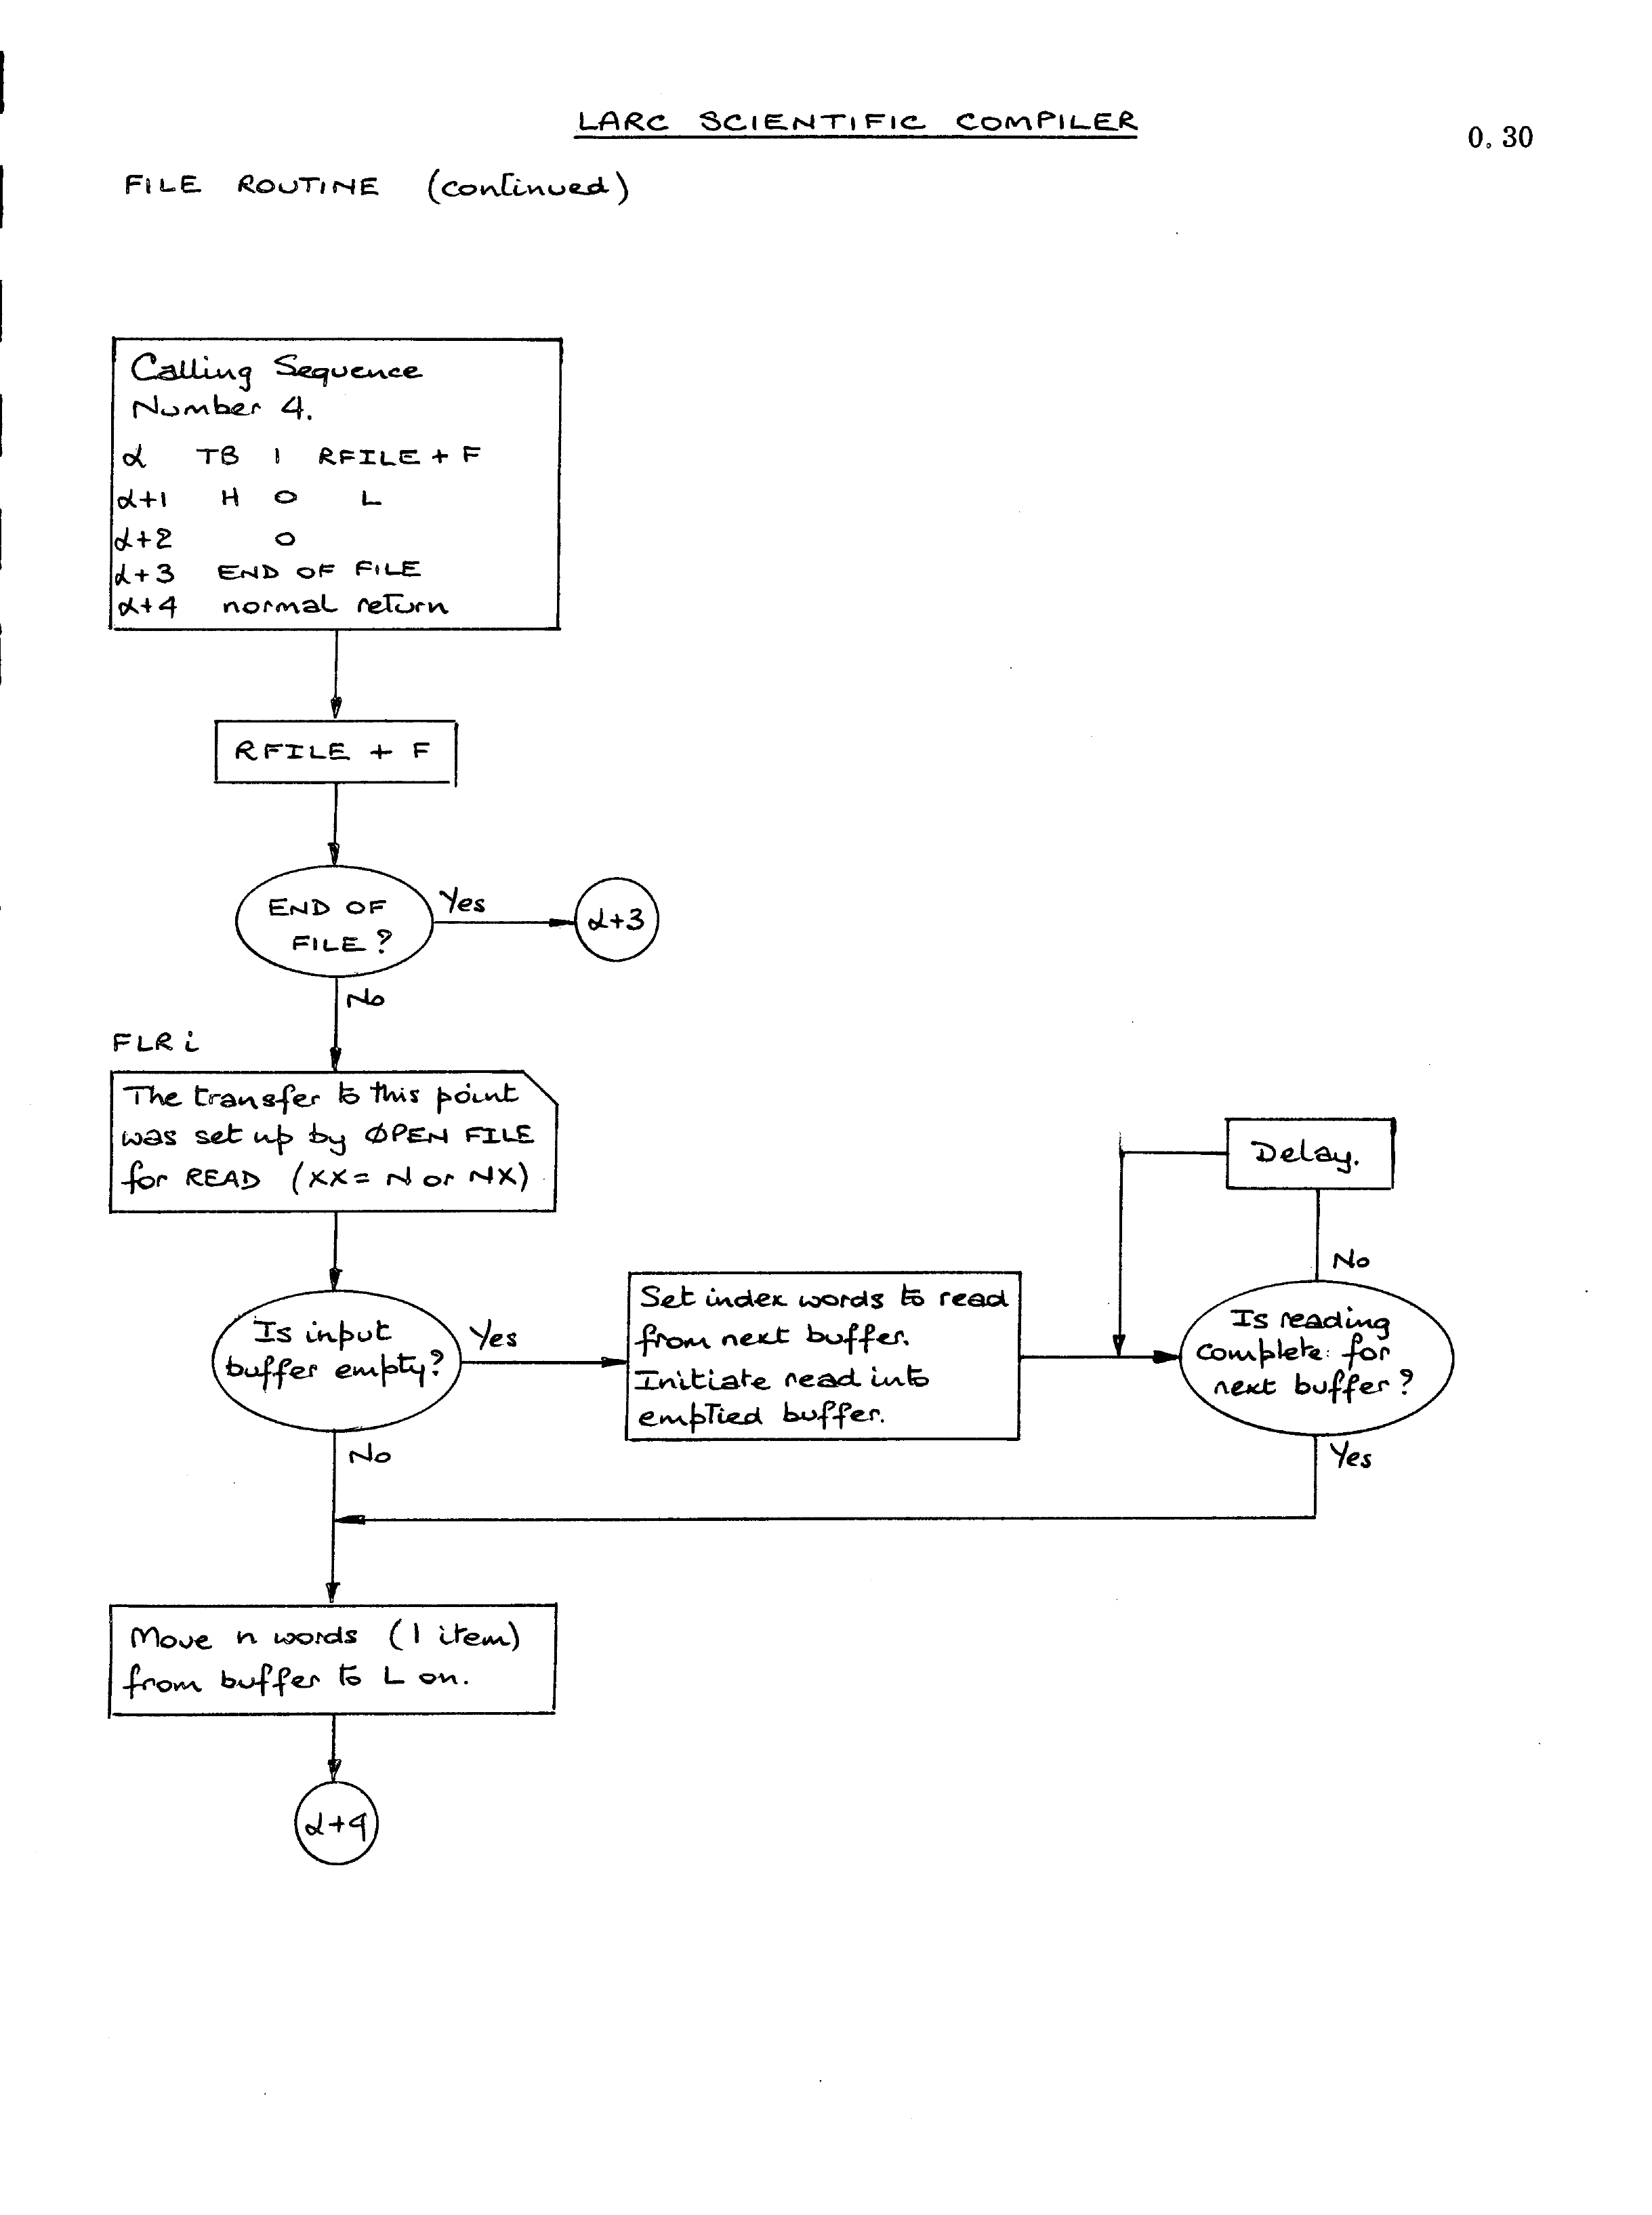 LARC SCIENTIFIC COMPILER
0.30
FILE ROUTINE (continued)
Calling Sequence
Number 4.
α TB 1 RFILE + F
α+1 H 0 L
α+2 0
α+3 END OF FILE
α+4 normal return
RFILE + F
END OF
FILE?
Yes
α+3
No
FLR i
The transfer to this point
was set up by ØPEN FILE
for READ (XX = N or NX)
Delay.
No
Is input
buffer empty?
Yes
Set index words to read
from next buffer.
Initiate read into
emptied buffer.
Is reading
complete for
next buffer?
No
Yes
Move n words (1 item)
from buffer to L on.
α+4